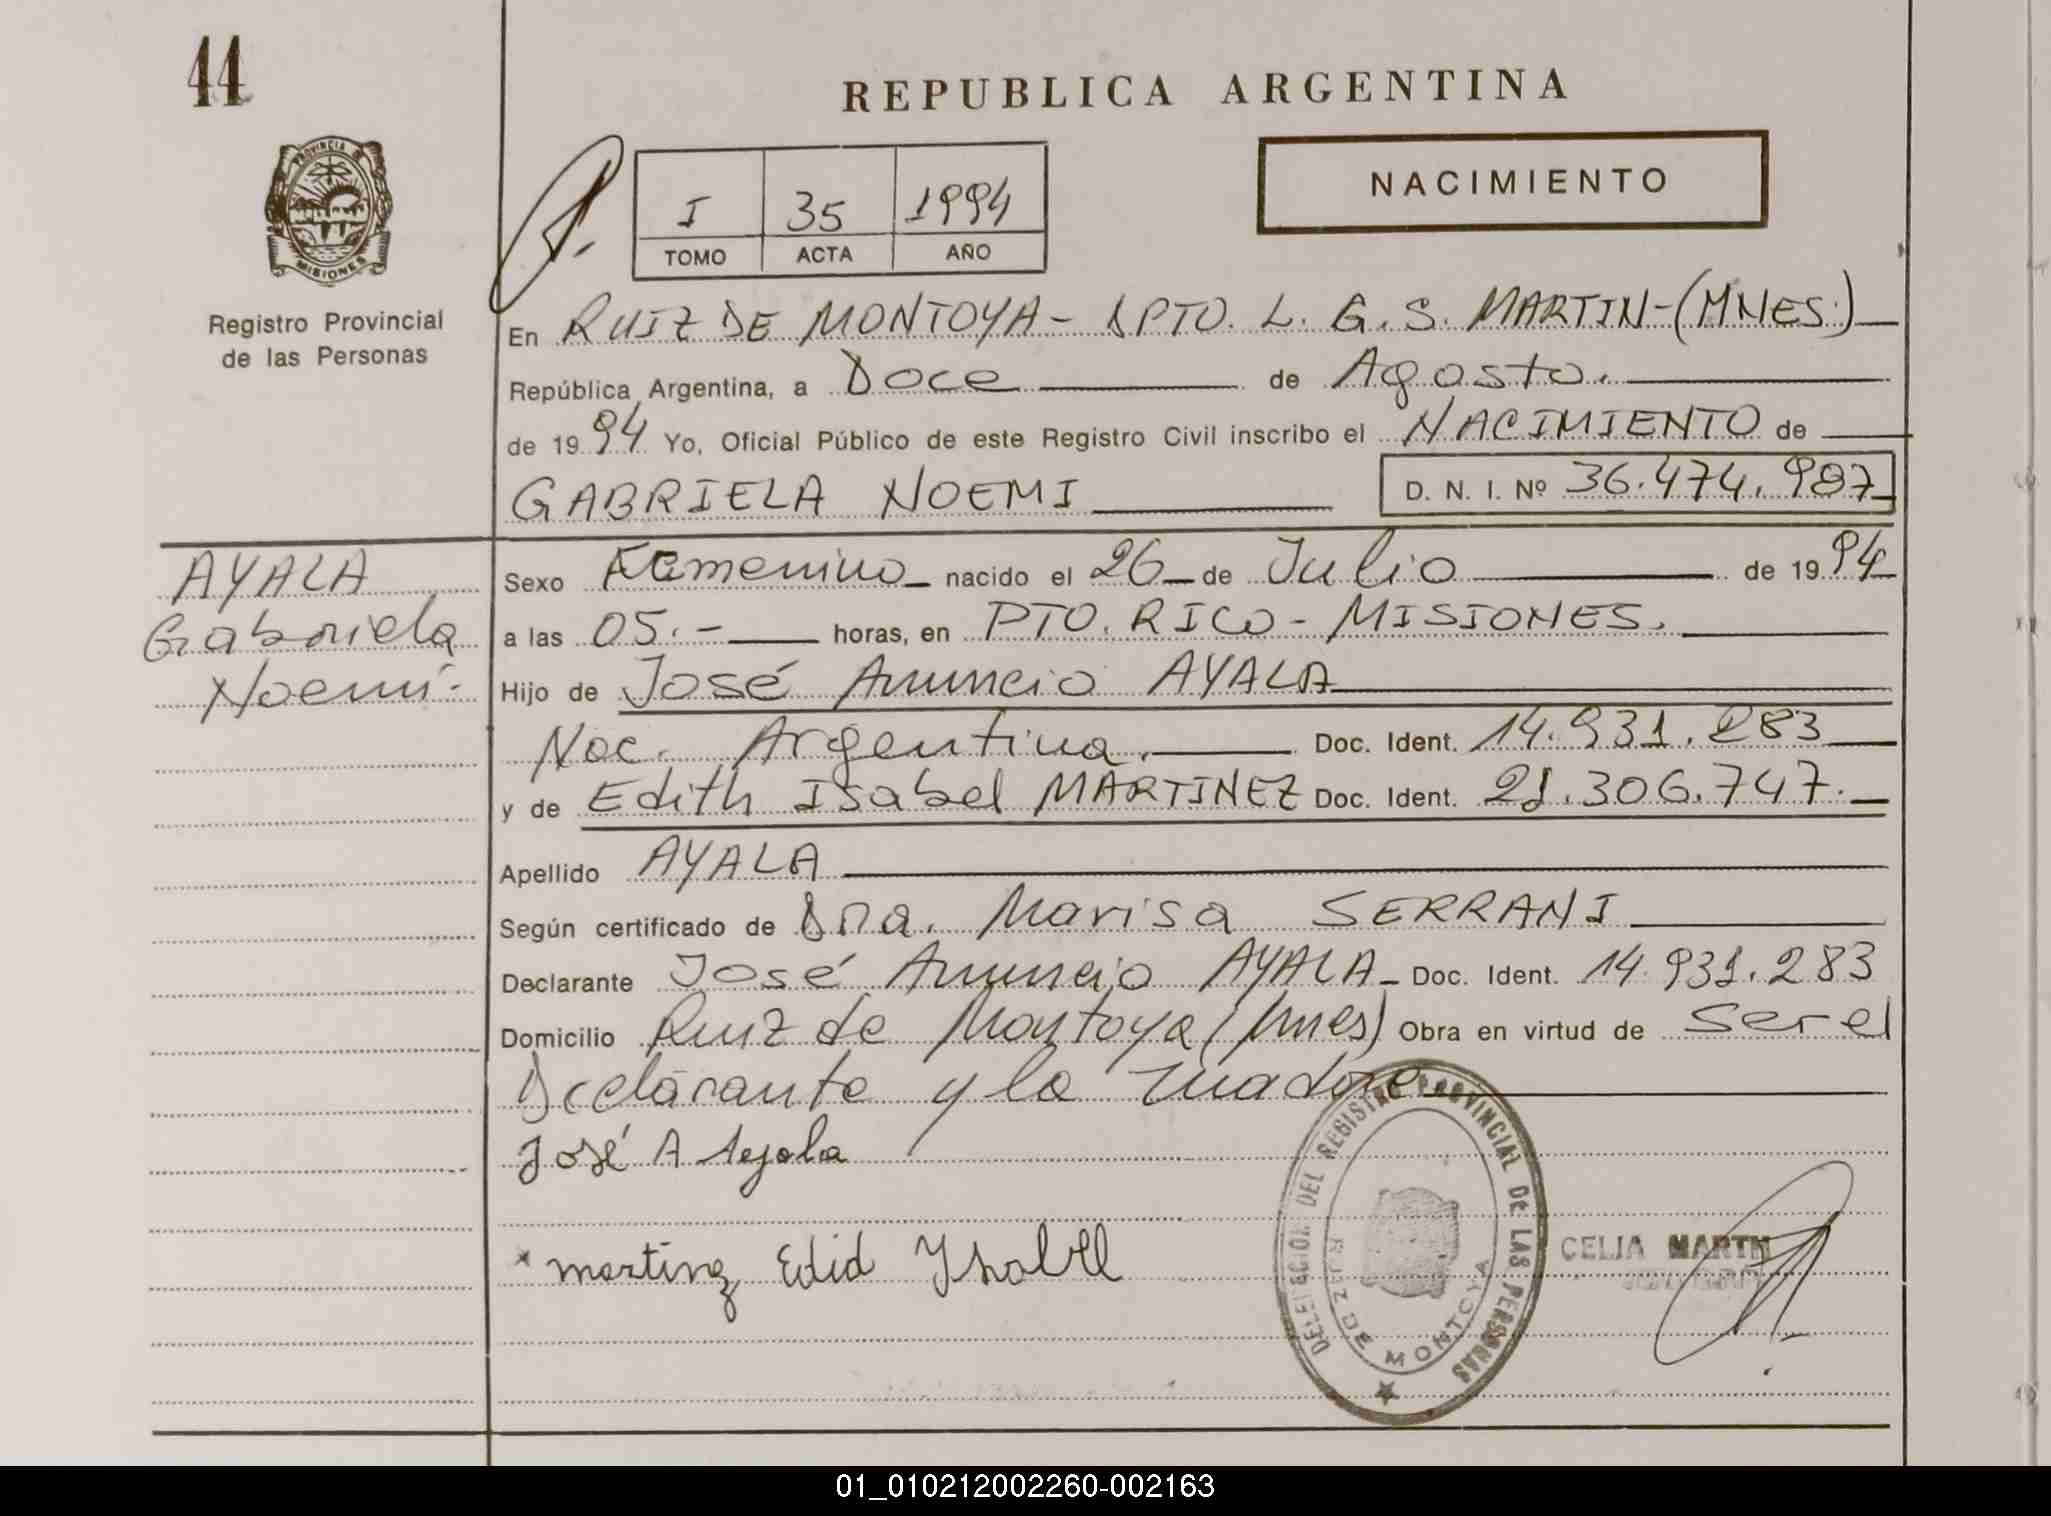 44
REPUBLICA ARGENTINA
NACIMIENTO
I 35 1994
TOMO ACTA AÑO
PROVINCIA DE
MISIONES
Registro Provincial
de las Personas
En RUIZ DE MONTOYA - DPTO. L. G. S. MARTIN - (MNES.)
República Argentina, a Doce de Agosto.
de 1994 Yo, Oficial Público de este Registro Civil inscribo el NACIMIENTO de
GABRIELA NOEMI D. N. I. Nº 36.474.987
AYALA
Gabriela
Noemí.-
Sexo Femenino nacido el 26 de Julio de 1994
a las 05.- horas, en PTO. RICO - MISIONES.
Hijo de José Anuncio AYALA
Nac. Argentina. Doc. Ident. 14.931.283
y de Edith Isabel MARTINEZ Doc. Ident. 21.306.747.
Apellido AYALA
Según certificado de Dra. Marisa SERRANI
Declarante José Anuncio AYALA Doc. Ident. 14.931.283
Domicilio Ruiz de Montoya (Mnes) Obra en virtud de Ser el
Declarante y la madre
José A Ayala
martinz Edid Ysabel
DELEGACION DEL REGISTRO PROVINCIAL DE LAS PERSONAS
RUIZ DE MONTOYA
CELIA
01_010212002260-002163